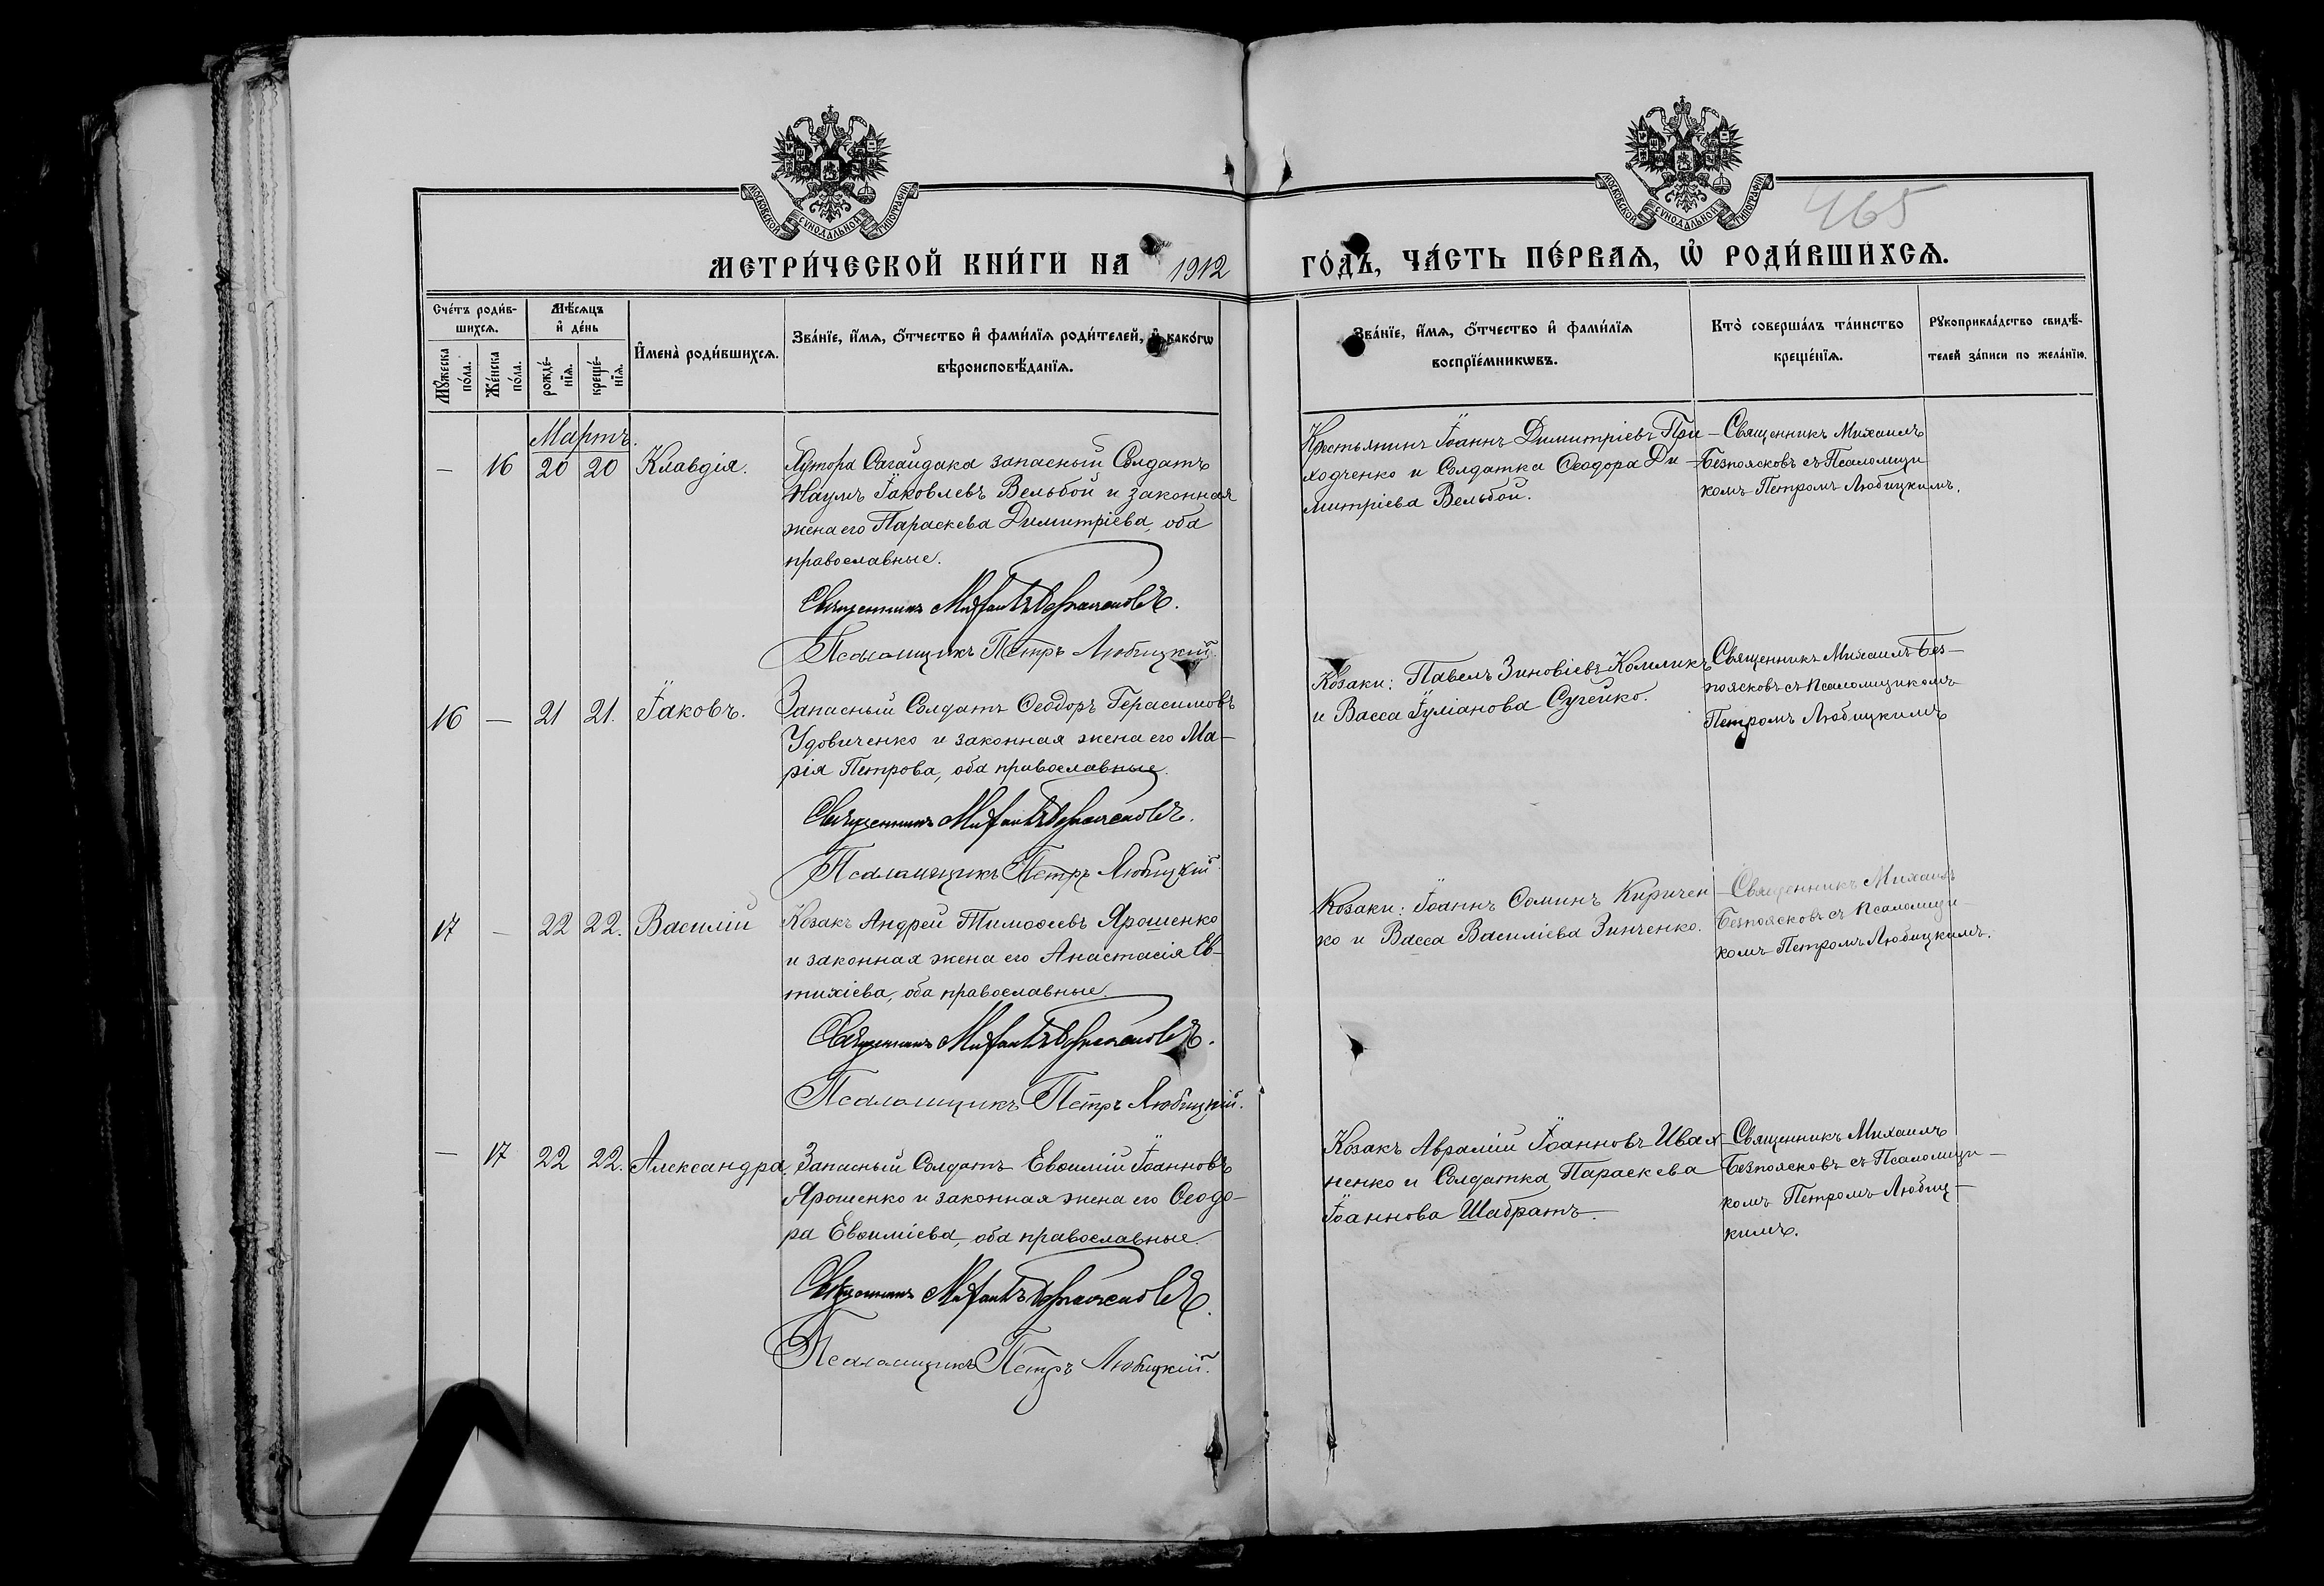 МОСКОВСКОЙ СѴНОДАЛЬНОЙ ТИПОГРАФІИ
МОСКОВСКОЙ СѴНОДАЛЬНОЙ ТИПОГРАФІИ
465
МЕТРИ́ЧЕСКОЙ КНИ́ГИ НА 1912 ГО́ДЪ, ЧА́СТЬ ПЕ́РВАѦ, Ѡ҆ РОДИ́ВШИХСѦ.
Сче́тъ роди́в-
шихсѧ.
Мꙋ́жеска
по́ла.
Же́нска
по́ла.
Мѣ́сѧцъ
и҆ де́нь
рожде́-
нїѧ.
креще́-
нїѧ.
И҆мена̀ роди́вшихсѧ.
Зва́нїе, и҆́мѧ, ѻ҆́тчество и҆ фами́лїѧ роди́телей, и҆ како́гѡ
вѣроисповѣ́данїѧ.
Зва́нїе, и҆́мѧ, ѻ҆́тчество и҆ фами́лїѧ
воспрїе́мникѡвъ.
Кто̀ соверша́лъ та́инство
креще́нїѧ.
Рꙋкоприкла́дство свидѣ́-
телей за́писи по жела́нїю.
Мартъ.
— 16 20 20 Клавдія.
Хутора Сагайдака запасный Солдатъ
Наумъ Іаковлевъ Вельбой и законная
жена его Параскева Димитріева, оба
православные.
Священникъ Михаилъ Безпоясковъ.
Псаломщикъ Петръ Любицкій.
Крестьянинъ Іоаннъ Димитріевъ При-
ходченко и Солдатка Ѳеодора Ди-
митріева Вельбой.
Священникъ Михаилъ
Безпоясковъ съ Псаломщи
комъ Петромъ Любицкимъ.
16 — 21 21. Іаковъ.
Запасный Солдатъ Ѳеодоръ Герасимовъ
Удовиченко и законная жена его Ма-
рія Петрова, оба православные.
Священникъ Михаилъ Безпоясковъ.
Псаломщикъ Петръ Любицкій
Козаки: Павелъ Зиновіевъ Комликъ
и Васса Іуліанова Сугейко.
Священникъ Михаилъ Без-
поясковъ съ Псаломщикомъ
Петромъ Любицкимъ
17 — 22 22. Василій
Козакъ Андрей Тимоѳеевъ Ярошенко
и законная жена его Анастасія Ев-
тихіева, оба православные.
Священникъ Михаилъ Безпоясковъ.
Псаломщикъ Петръ Любицкій.
Козаки: Іоаннъ Ѳоминъ Киричен-
ко и Васса Василіева Зинченко.
Священникъ Михаилъ
Безпоясковъ съ Псаломщи-
комъ Петромъ Любицкимъ.
— 17 22 22. Александра,
Запасный Солдатъ Евѳимій Іоанновъ
Ярошенко и законная жена его Ѳеодо-
ра Евѳиміева, оба православные.
Священникъ Михаилъ Безпоясковъ.
Псаломщикъ Петръ Любицкій.
Козакъ Аврамій Іоанновъ Ивах-
ненко и Солдатка Параскева
Іоаннова Шабратъ.
Священникъ Михаилъ
Безпоясковъ съ Псаломщи-
комъ Петромъ Любиц-
кимъ.